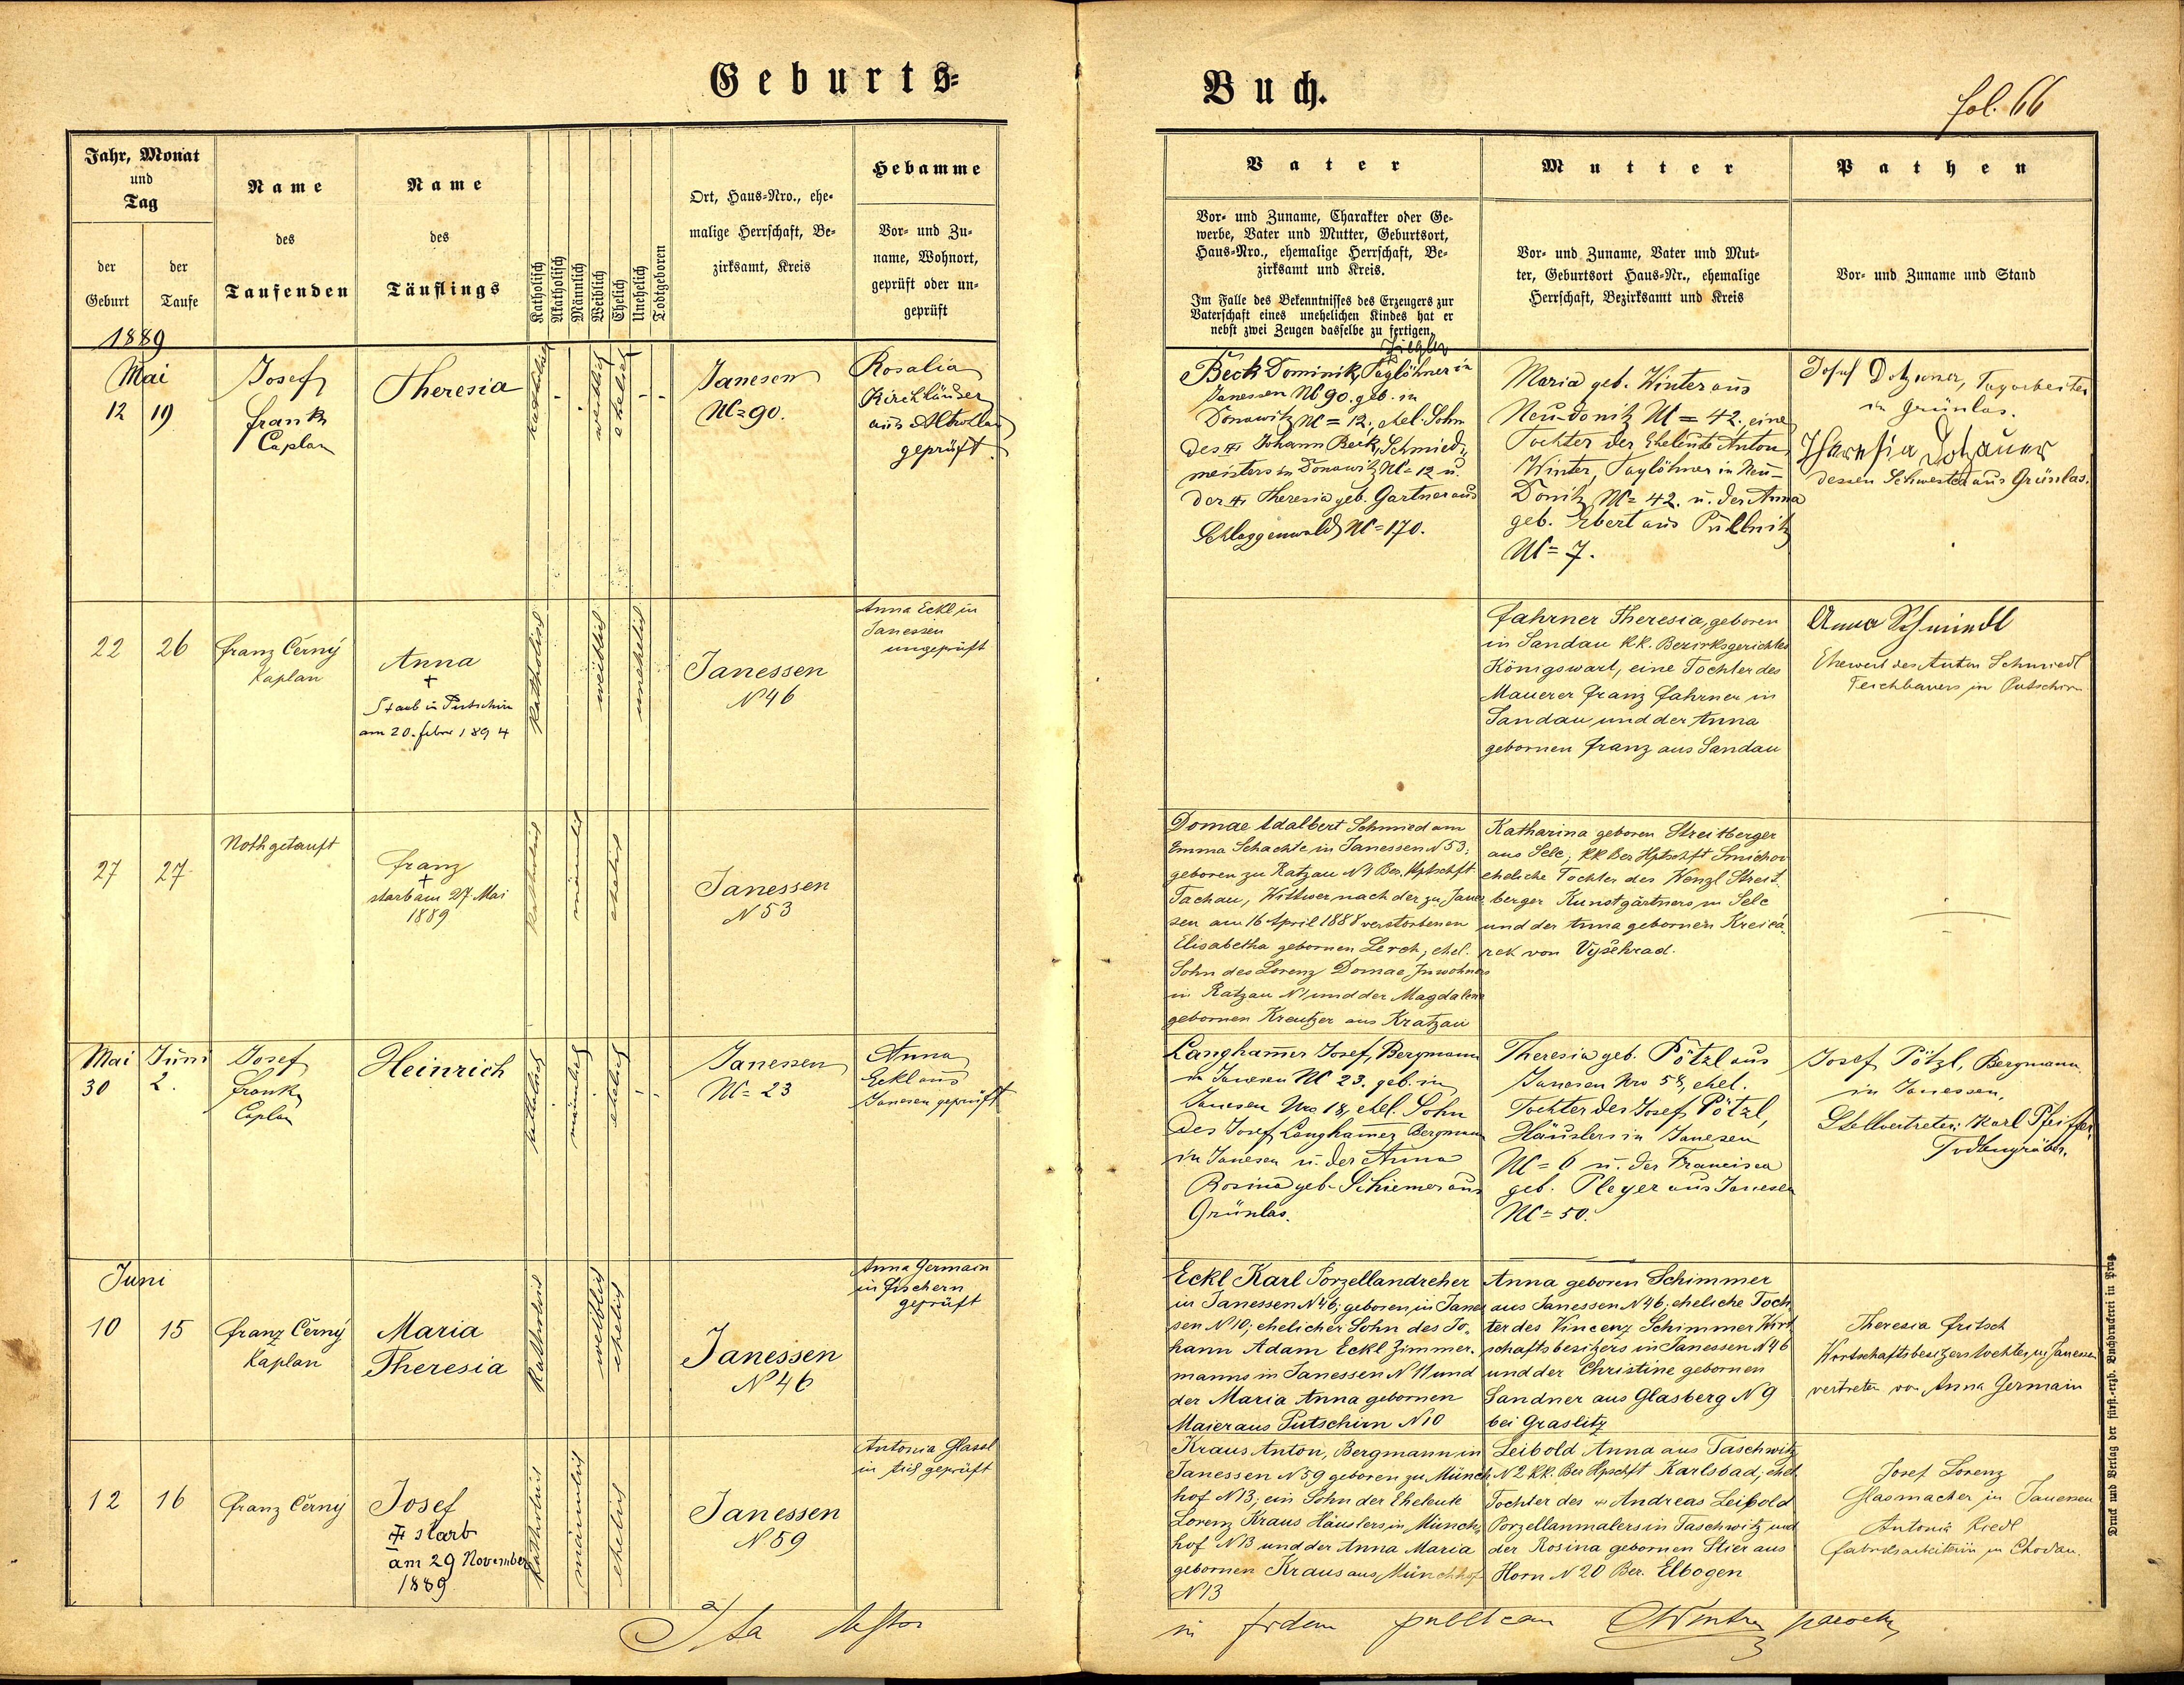 Geburts=
Buch.
fol. 66
Jahr, Monat
und
Tag
der
Geburt
der
Taufe
Name
des
Taufenden
Name
des
Täuflings
Katholisch
Akatholisch
Männlich
Weiblich
Ehelich
Unehelich
Todtgeboren
Ort, Haus=Nro., ehe-
malige Herrschaft, Be-
zirksamt, Kreis
Hebamme
Vor- und Zu-
name, Wohnort,
geprüft oder un-
geprüft
Vater
Vor- und Zuname, Charakter oder Ge-
werbe, Vater und Mutter, Geburtsort,
Haus-Nro., ehemalige Herrschaft, Be-
zirksamt und Kreis.
Im Falle des Bekenntnisses des Erzeugers zur
Vaterschaft eines unehelichen Kindes hat er
nebst zwei Zeugen dasselbe zu fertigen.
Mutter
Vor- und Zuname, Vater und Mut-
ter, Geburtsort Haus-Nr., ehemalige
Herrschaft, Bezirksamt und Kreis
Pathen
Vor- und Zuname und Stand
1889
Mai
12 19
Josef
Frank
Caplan
Theresia
katholisch
weiblich
ehelich
Janesen
NC= 90.
Rosalia
Kirchländer
aus Altrollau
geprüft.
Beck Dominik, Taglöhner in
Janessen NC 90. geb. in
Donawitz NC = 12, ehel. Sohn
des Johann Beck, Schmied-
meisters in Donawitz NC= 12 u.
der Theresia geb. Gartner aus
Schlaggenwald NC= 170.
Maria geb. Winter aus
Neu-donitz NC = 42, eine
Tochter der Eheleute Anton
Winter, Taglöhner in Neu-
Donitz NC= 42. u. der Anna
geb. Ebert aus Püllnitz
NC= 7.
Josef Dotzauer, Tagarbeiter
in Grünlas.
Theresia Dotzauer
dessen Schwester aus Grünlas.
22 26
Franz Černý
Kaplan
Anna
+
Starb in Putschirn
am 20. Feber 1894
katholisch
weiblich
unehelich
Janessen
N 46
Anna Eckl in
Janessen
ungeprüft
Fahrner Theresia, geboren
in Sandau kk. Bezirksgerichtes
Königswart, eine Tochter des
Mauerer Franz Fahrner in
Sandau und der Anna
gebornen Franz aus Sandau
Anna Schmiedl
Eheweib des Anton Schmiedl
Teichbauers in Putschirn
27 27
Nothgetauft
Franz
+
starb am 27 Mai
1889
katholisch
männlich
ehelich
Janessen
N 53
Domae Adalbert Schmied am
Emma Schachte in Janessen N 53;
geboren zu Ratzau N 1 Bez. Hptschft
Tachau, Wittwer nach der zu Janes
sen am 16 April 1888 verstorbenen
Elisabetha gebornen Lerch, ehel.
Sohn des Lorenz Domae Inwohners
in Ratzau N 1 und der Magdalena
gebornen Kreutzer aus Kratzau
Katharina geboren Streitberger
aus Selc, kk Bez Hptschft Smichov
eheliche Tochter des Wenzl Streit-
berger Kunstgärtners in Selc
und der Anna gebornen Kreica-
rek von Vyšehrad.
Mai Juni
30 2.
Josef
Frank
Caplan
Heinrich
katholisch
männlich
ehelich
Janessen
NC= 23
Anna
Eckl aus
Janesen geprüft
Langhammer Josef, Bergmann
in Janesen NC 23. geb. in
Janesen Nro 18, ehel. Sohn
des Josef Langhammer Bergmann
in Janesen u. der Anna
Rosina geb. Schiemer aus
Grünlas.
Theresia geb. Pötzl aus
Janesen Nro 58, ehel.
Tochter des Josef Pötzl,
Häuslers in Janesen
NC= 6 u. der Francisca
geb. Pleyer aus Janesen
NC= 50.
Josef Pötzl, Bergmann
in Janessen,
Stellvertreter: Karl Pfeiffer,
Todtengräber.
Juni
10 15
Franz Černý
Kaplan
Maria
Theresia
katholisch
weiblich
ehelich
Janessen
N 46
Anna Germain
in Fischern
geprüft
Eckl Karl Porzellandreher
in Janessen N 46; geboren in Janes
sen N 10; ehelicher Sohn des Jo-
hann Adam Eckl Zimmer-
manns in Janessen N 11 und
der Maria Anna gebornen
Maier aus Putschirn N 10
Anna geboren Schimmer
aus Janessen N 46; eheliche Toch
ter des Vincenz Schimmer Wirt
schaftsbesitzers in Janessen N 46
und der Christine gebornen
Sandner aus Glasberg N 9
bei Graslitz
Theresia Fritsch
Wirtschaftsbesitzerstochter in Janessen
vertreten von Anna Germain
12 16
Franz Černý
Josef
starb
am 29 November
1889
katholisch
männlich
ehelich
Janessen
N 59
Antonia Glassl
in Aich geprüft
Kraus Anton, Bergmann in
Janessen N 59 geboren zu Münch
hof N 13; ein Sohn der Eheleute
Lorenz Kraus Häuslers in Münch-
hof N 13 und der Anna Maria
gebornen Kraus aus Münchhof
N 13
Leibold Anna aus Taschwitz
N 2 kk. Bez Hpschft Karlsbad; ehel
Tochter des Andreas Leibold
Porzellanmalers in Taschwitz und
der Rosina gebornen Stier aus
Horn N 20 Bez. Elbogen
Josef Lorenz
Glasmacher in Janessen
Antonia Riedl
Fabriksarbeiterin in Chodau.
Ita testor
in fidem publicam
Druck und Verlag der fürst.-erzb. Buchdruckerei in Prag.